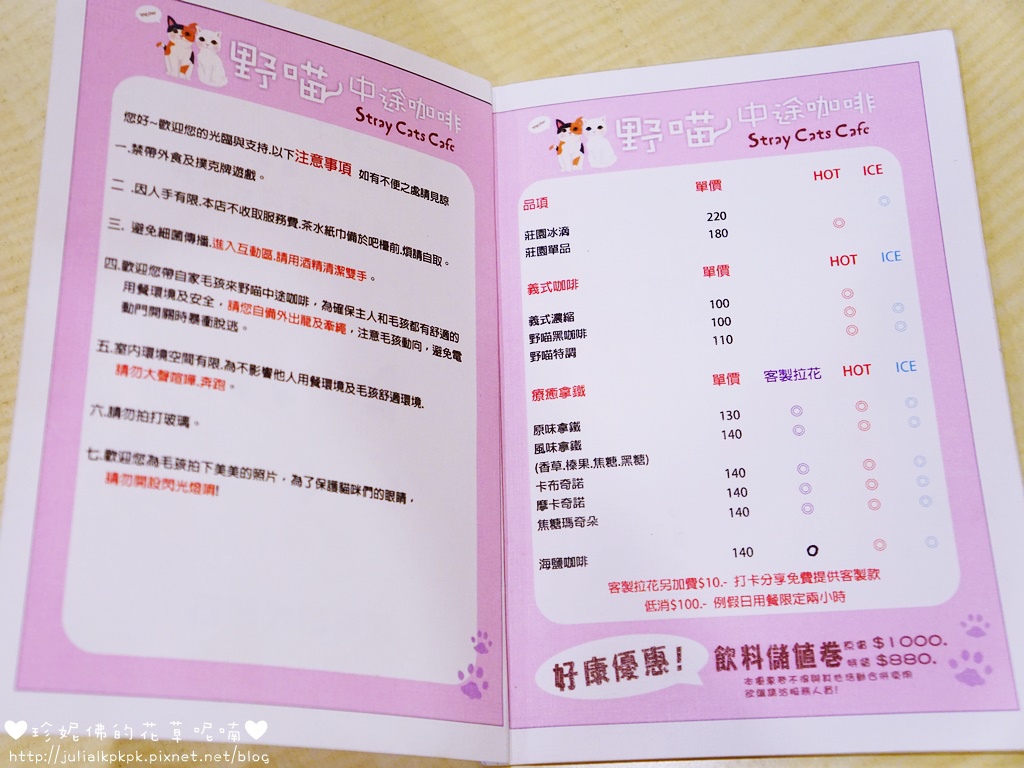 野喵中途咖啡
Stray Cats Cafe
您好~歡迎您的光臨與支持.以下注意事項 如有不便之處請見諒
一.禁帶外食及撲克牌遊戲。
二 .因人手有限.本店不收取服務費.茶水紙巾備於吧檯前.煩請自取。
三. 避免細菌傳播.進入互動區.請用酒精清潔雙手。
四.歡迎您帶自家毛孩來野喵中途咖啡，為確保主人和毛孩都有舒適的
用餐環境及安全，請您自備外出籠及牽繩，注意毛孩動向，避免電
動門開關時暴衝脫逃。
五.室內環境空間有限.為不影響他人用餐環境及毛孩舒適環境.
請勿大聲喧嘩.奔跑。
六.請勿拍打玻璃。
七.歡迎您為毛孩拍下美美的照片，為了保護貓咪們的眼睛，
請勿開設閃光燈唷!
野喵中途咖啡
Stray Cats Cafe
品項 單價 HOT ICE
莊園冰滴 220 ◎
莊園單品 180 ◎
義式咖啡 單價 HOT ICE
義式濃縮 100 ◎
野喵黑咖啡 100 ◎ ◎
野喵特調 110 ◎ ◎
療癒拿鐵 單價 客製拉花 HOT ICE
原味拿鐵 130 ◎ ◎ ◎
風味拿鐵 140 ◎ ◎ ◎
(香草.榛果.焦糖.黑糖)
卡布奇諾 140 ◎ ◎ ◎
摩卡奇諾 140 ◎ ◎ ◎
焦糖瑪奇朵 140 ◎ ◎ ◎
海鹽咖啡 140 O ◎ ◎
客製拉花另加費$10.- 打卡分享免費提供客製款
低消$100.- 例假日用餐限定兩小時
好康優惠!
飲料儲值卷 原價 $1000.
特價 $880.
♥珍妮佛的花草呢喃♥
http://julialkpkpk.pixnet.net/blog